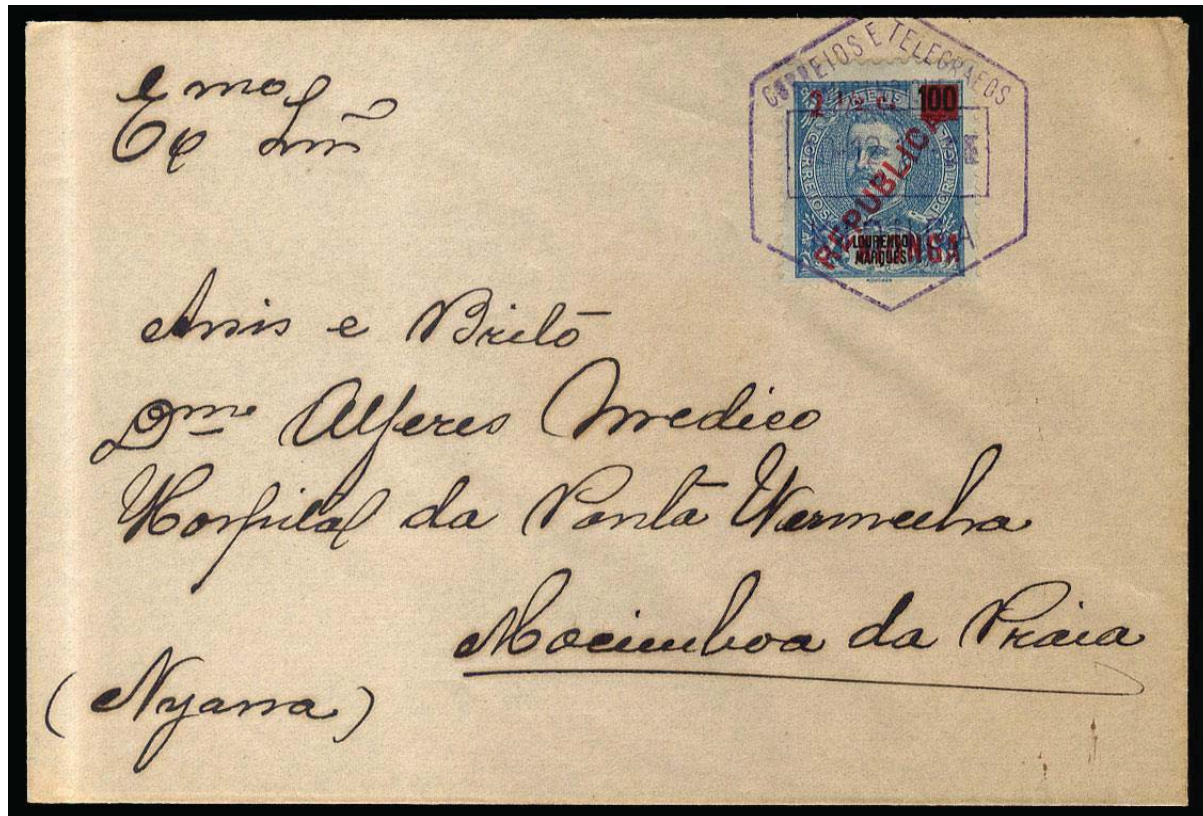 CORREIOS E TELEGRAFOS
2 ½ c. 100
CORREIOS PORTUGAL
REPUBLICA
LOURENÇO
MARQUES
KIONGA
Exmo Snr
Assis e Brito
Dmo Alferes Medico
Hospital da Ponta Vermelha
Mocimboa da Praia
(Nyassa)